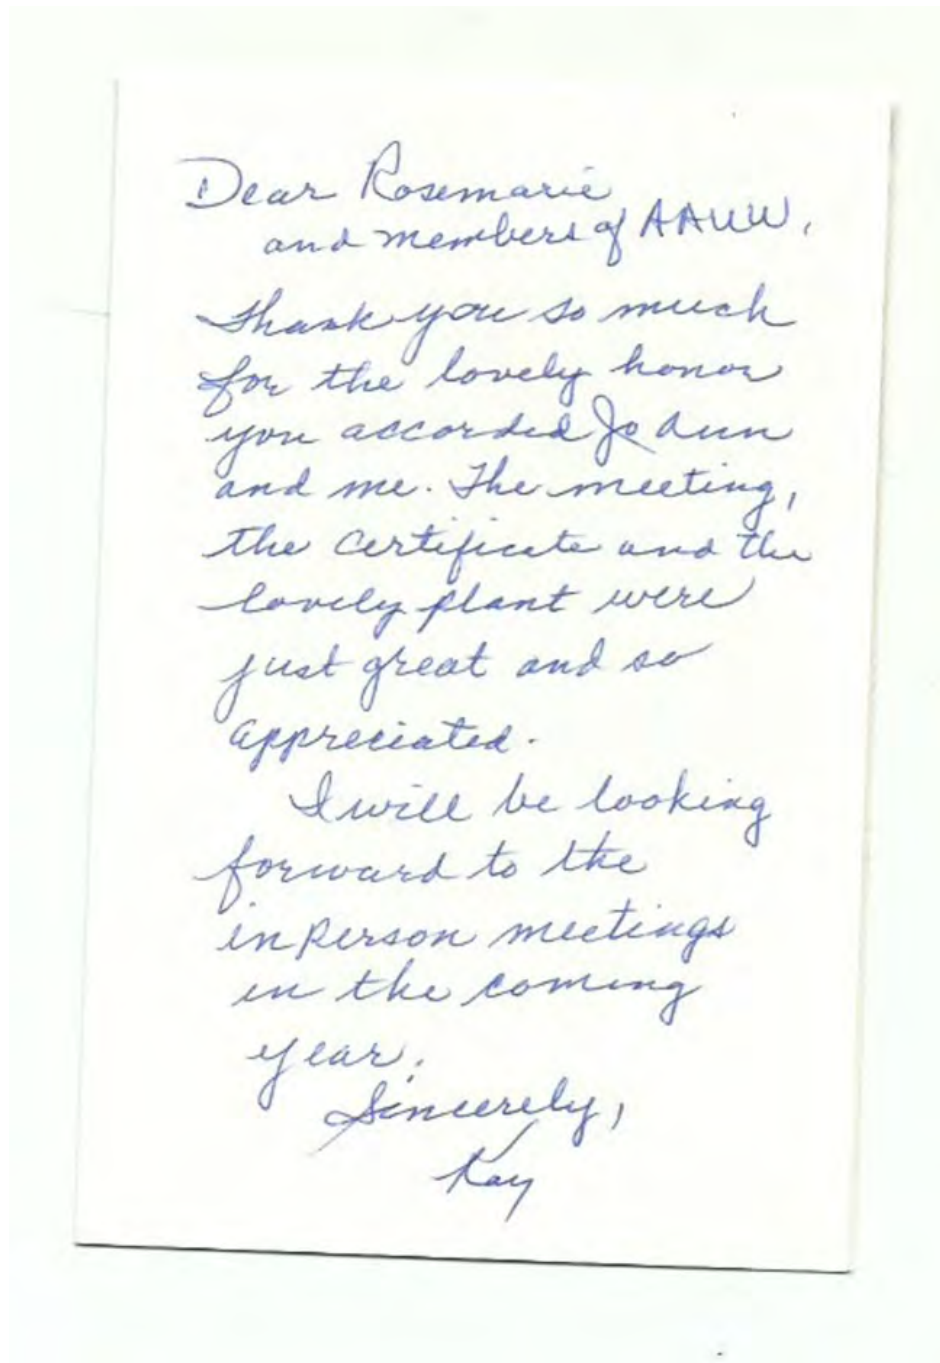 Dear Rosemarie
and members of AAUW,
Thank you so much
for the lovely honor
you accorded Jo Ann
and me. The meeting,
the certificate and the
lovely plant were
just great and so
appreciated.
I will be looking
forward to the
in person meetings
in the coming
year.
Sincerely,
Kay